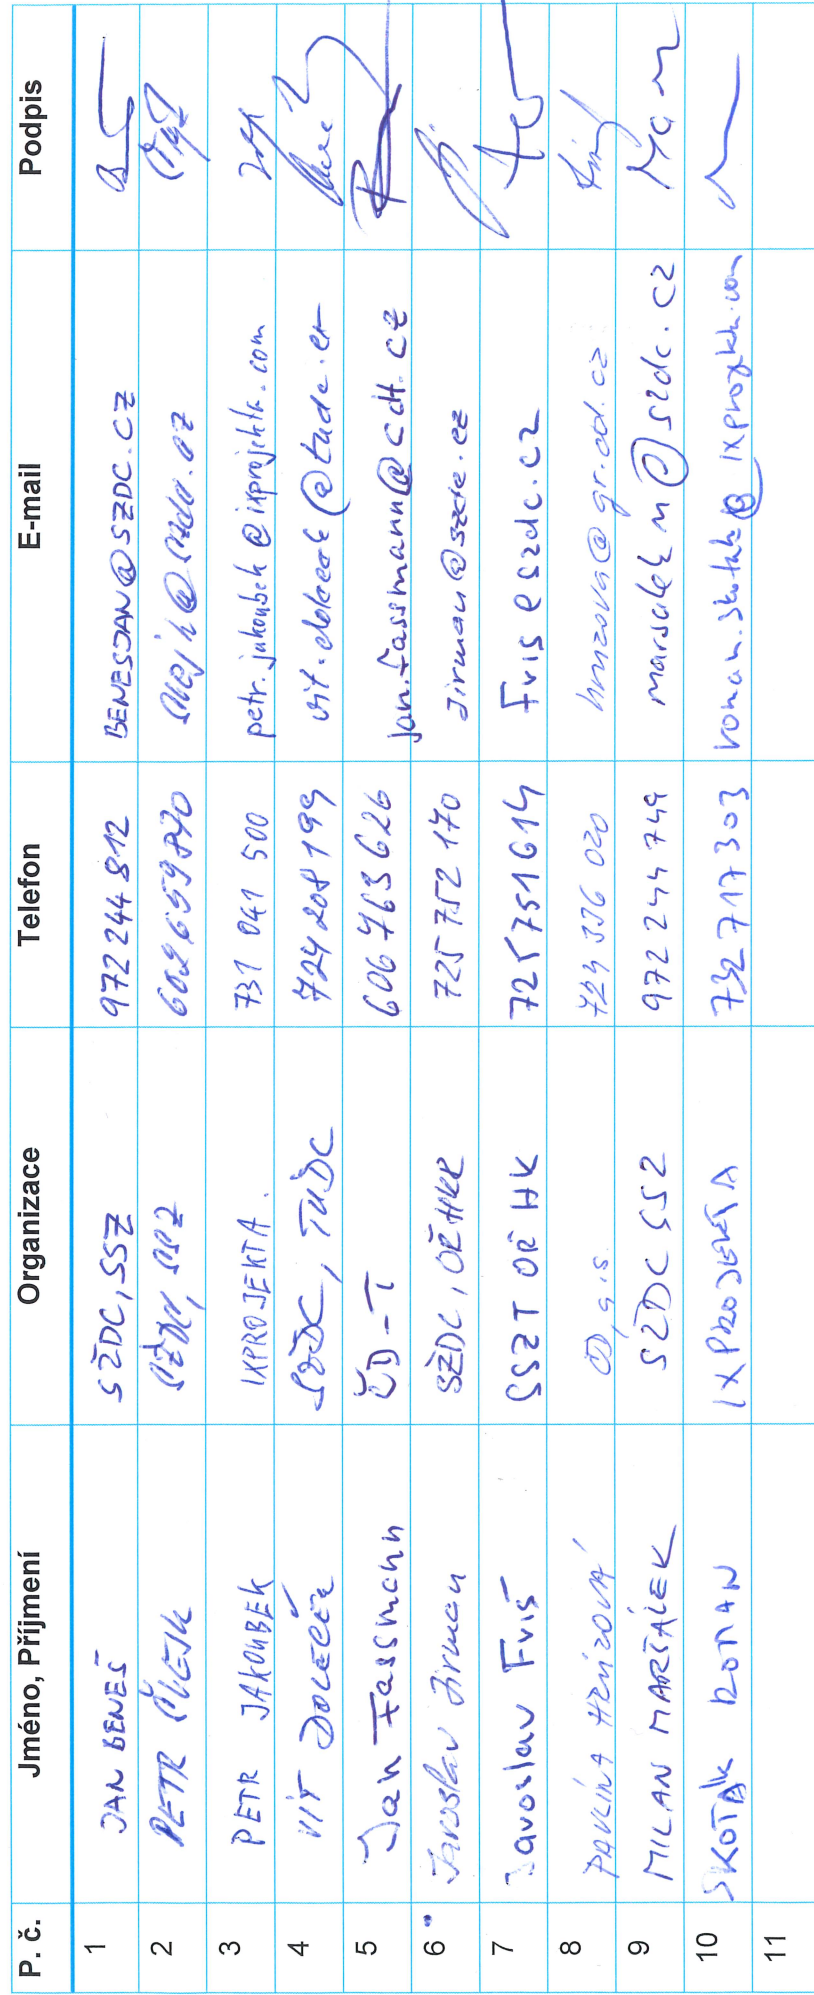 P. č. Jméno, Příjmení Organizace Telefon E-mail Podpis
1 JAN BENEŠ SŽDC, SSZ 972 244 812 BENESJAN@SZDC.CZ
2 PETR SŽDC, SSZ 602 659 870
3 PETR JAKOUBEK IXPROJEKTA. 731 041 500 petr.jakoubek@ixprojekta.com
4 VÍT DOLEČEK SŽDC, TÚDC 724 208 199
5 Jan Fassmann ČD-T 606 763 626 jan.fassmann@cdt.cz
6 Jaroslav Jirman SŽDC, OŘ HKR 725 752 170 Jirman@szdc.cz
7 Jaroslav Friš SSZT OŘ HK 725751614 Fris@szdc.cz
8 PAVLÍNA HRŮZOVÁ ČD, a.s. 724 336 020 hruzova@gr.cd.cz
9 MILAN MARŠÁLEK SŽDC SSZ 972 244 749 marsalekm@szdc.cz
10 SKOTÁK ROMAN IXPROJEKTA 732 717 303
11